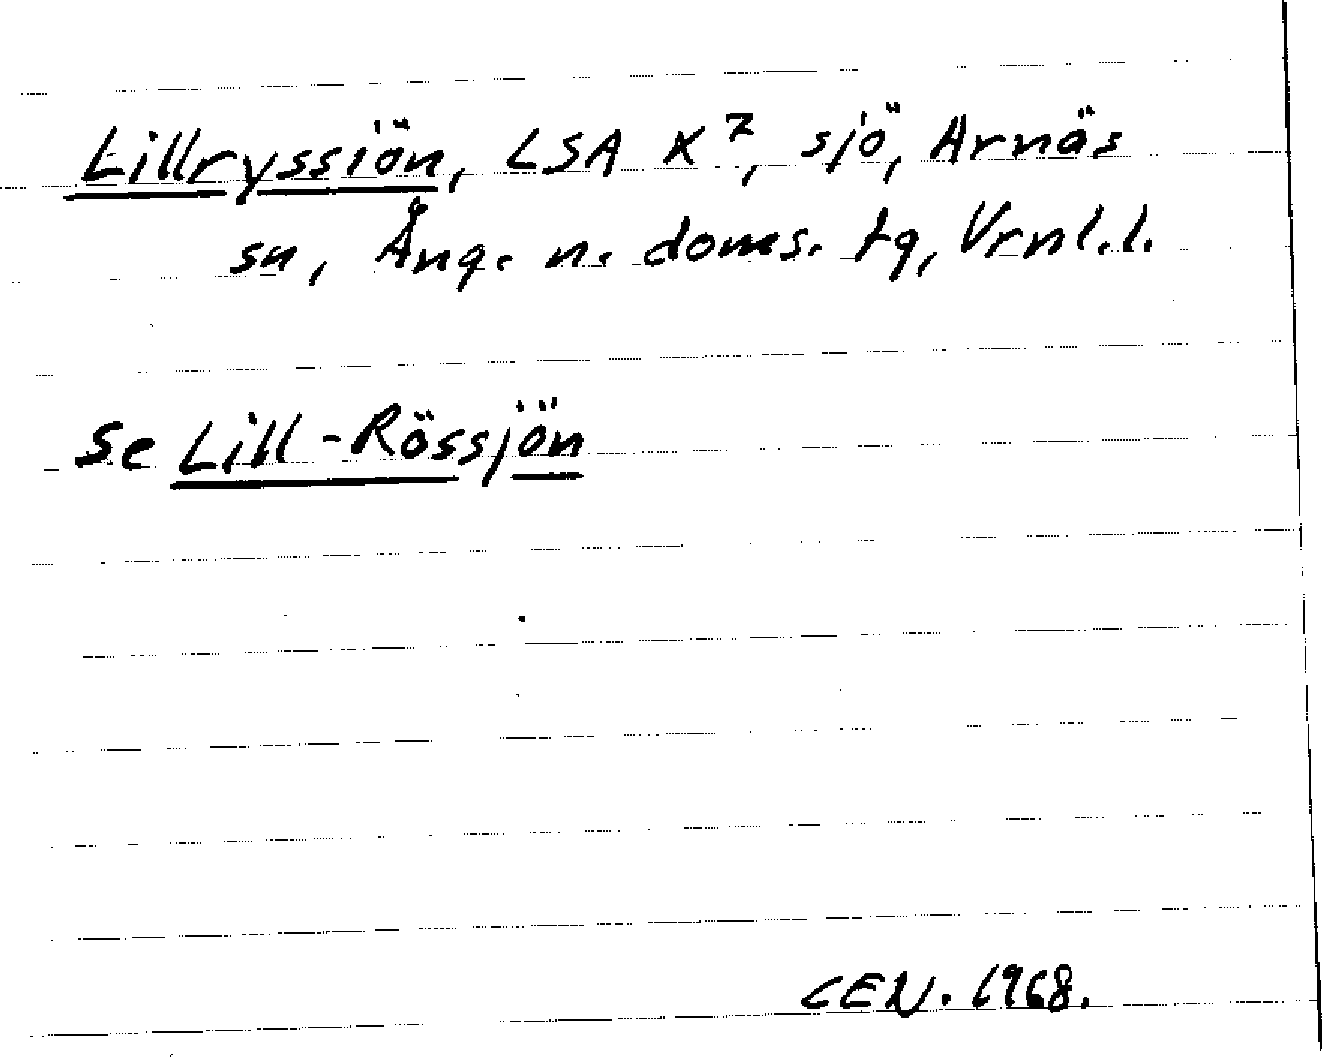 Lillryssiön, LSA K7, sjö, Arnäs
sn, Ång. n. doms. tg, Vrnl.l.
Se Lill-Rössjön
CEN. 1968.